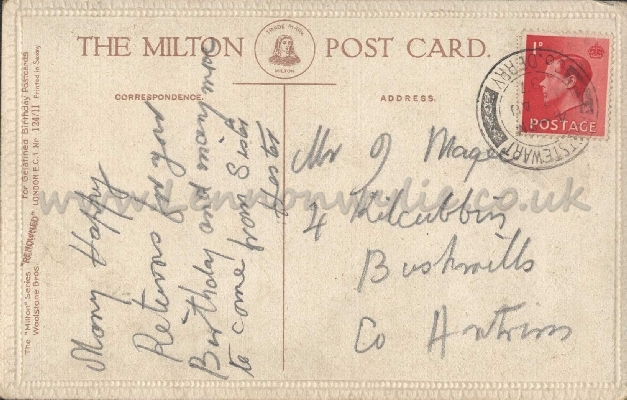 THE MILTON POST CARD.
TRADE MARK
MILTON
CORRESPONDENCE.
ADDRESS.
1D
POSTAGE
TSTEWART
CO. DERRY
Many Happy
Returns for your
Birthday and many more
to come from Sister
Mr J Magee
4 Kilcubbin
Bushmills
Co Antrim
The "Milton" Series "RENOWNED" for Gelatined Birthday Postcards
Woolstone Bros. LONDON E.C.1 Nr 124/11 Printed in Saxony
www.Lennonwylie.co.uk